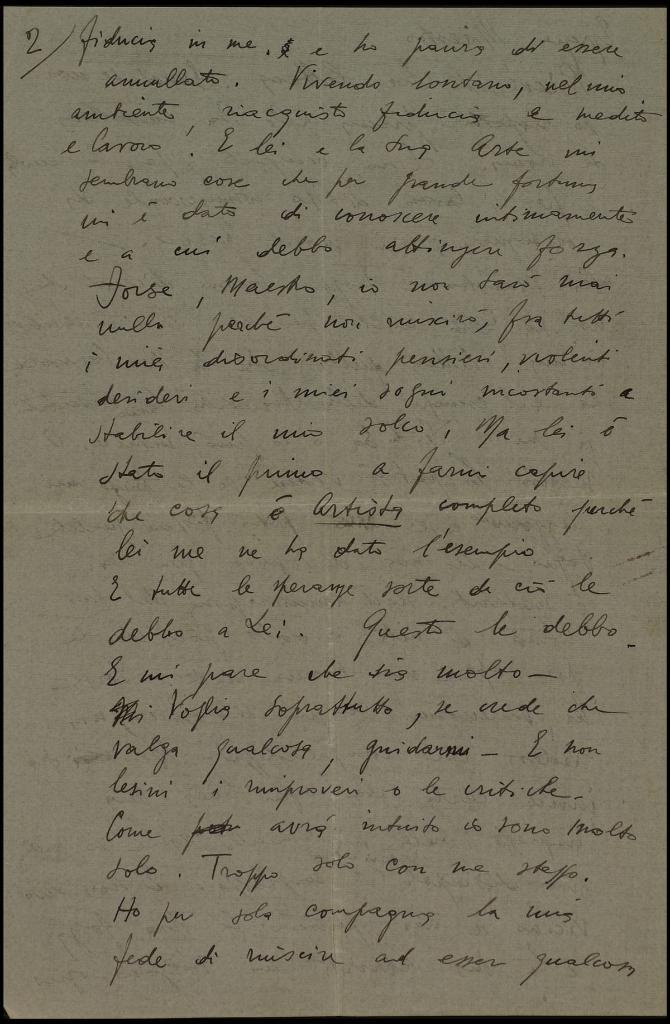 2/ fiducia in me. e ho paura di essere
annullato. Vivendo lontano, nel mio
ambiente, riacquisto fiducia e medito
e lavoro. E lei e la Sua Arte mi
sembrano cose che per grande fortuna
mi è dato di conoscere intimamente
e a cui debbo attingere forza.
Forse, Maestro, io non sarò mai
nulla perché non riuscirò, fra tutti
i miei disordinati pensieri, violenti
desideri e i miei sogni incostanti a
stabilire il mio solco, Ma lei è
stato il primo a farmi capire
che cosa è Artista completo perché
lei me ne ha dato l'esempio
E tutte le speranze sorte da ciò le
debbo a Lei. Questo le debbo.
E mi pare che sia molto —
Voglia soprattutto, se crede che
valga qualcosa, guidarmi — E non
lesini i rimproveri o le critiche.
Come avrà intuito io sono molto
solo. Troppo solo con me stesso.
Ho per sola compagna la mia
fede di riuscire ad esser qualcosa